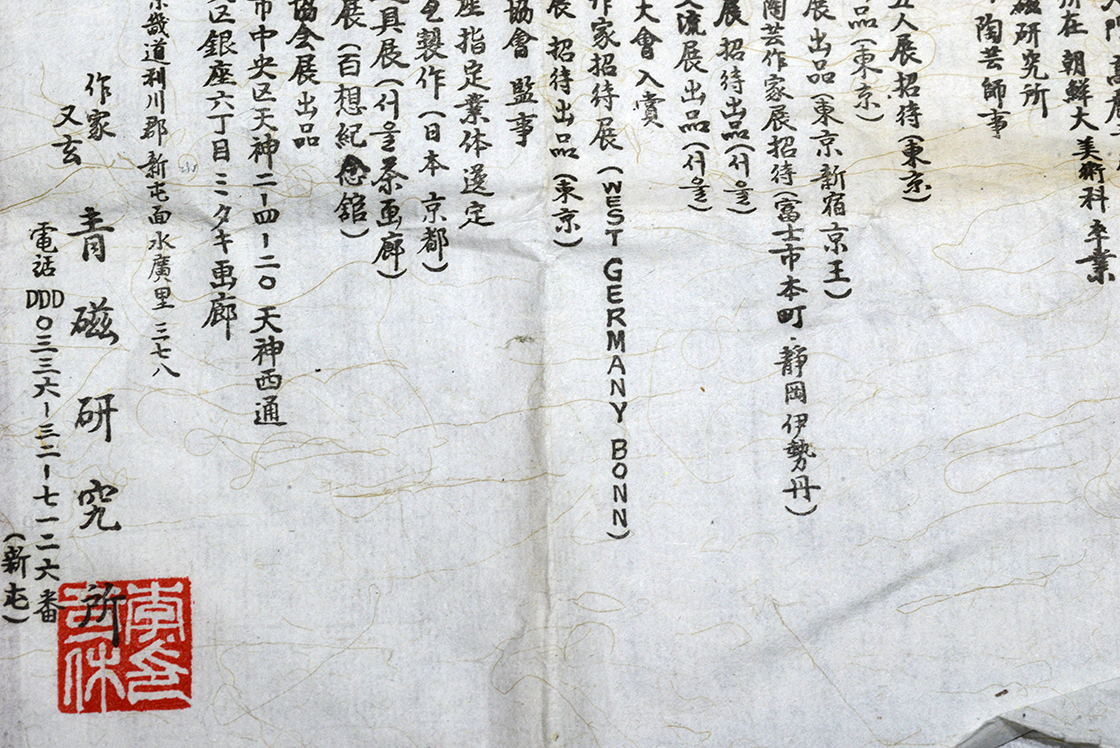 所在 朝鮮大 美術科 卒業
磁研究所
陶芸師事
五人展招待 (東京)
品 (東京)
展出品 (東京新宿京王)
陶芸作家展招待 富士市本町·静岡伊勢丹)
展 招待出品 (서울)
流展出品 (서울)
大會入賞
作家招待展 (WEST GERMANY BONN)
展 招待出品 (東京)
協會 監事
指定業体選定
製作 (日本 京都)
具展 (서울 茶画廊)
展 (百想紀念舘)
協会展出品
市中央区天神二-四-二〇 天神西通
区銀座六丁目 ミタキ画廊
京畿道利川郡新屯面水廣里 三七八
作家 又玄 青磁研究所
電話 DDD 〇三三六-三二-七一二六番
(新屯)